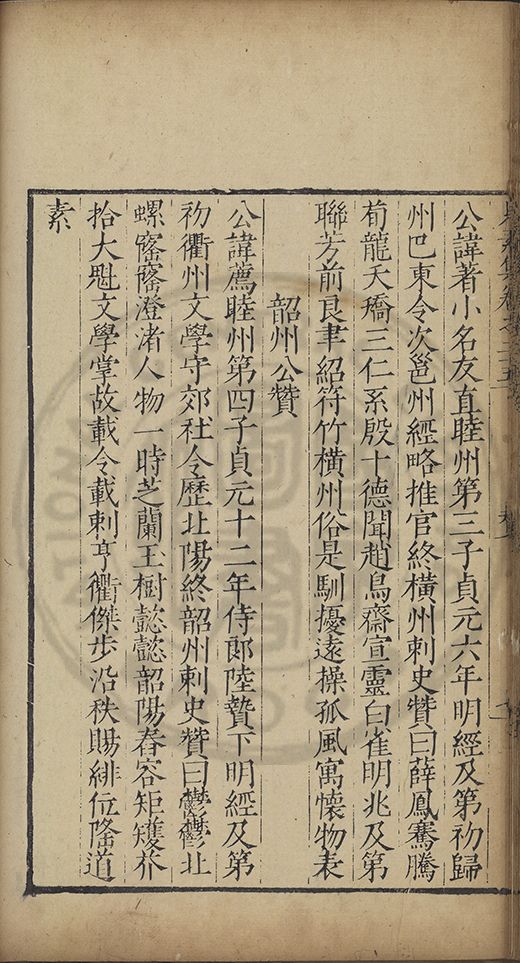 公諱著小名友直睦州第三子貞元六年明經及第初歸
州巴東令次邕州經略推官終橫州刺史贊曰薛鳳騫騰
荀龍夭矯三仁系殷十德聞趙鳥齋宣靈白雀明兆及第
聯芳前良聿紹符竹橫州俗是馴擾遠操孤風寓懷物表
韶州公贊
公諱薦睦州第四子貞元十二年侍郎陸贄下明經及第
初衢州文學守郊社令歷北陽終韶州刺史贊曰鬱鬱北
螺窋窋澄渚人物一時芝蘭玉樹懿懿韶陽春容矩矱芥
拾大魁文學堂故載令載刺亨衢傑步沿秩賜緋位隆道
素